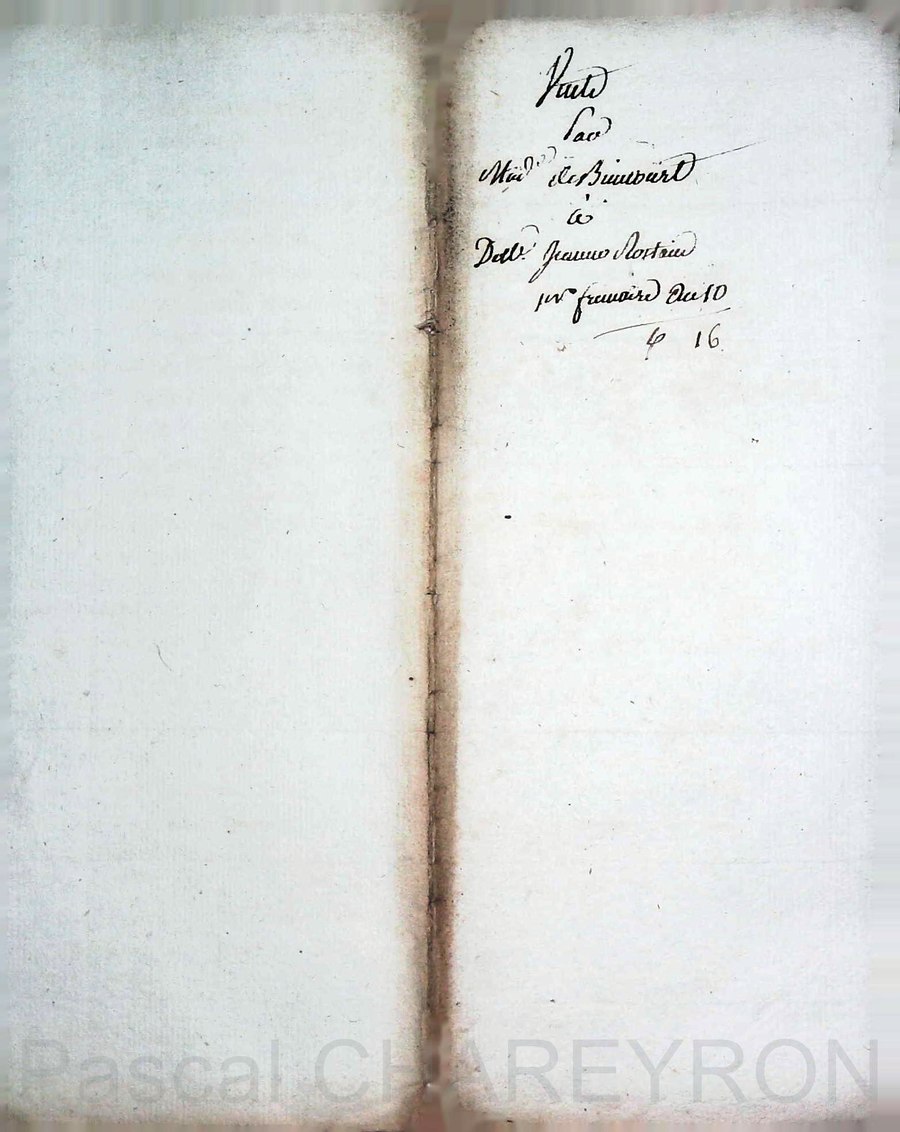 Vente
Par
Mad.e de Biencourt
à
Delle. Jeanne Rostain
1er frimaire An 10
16
Pascal CHAREYRON